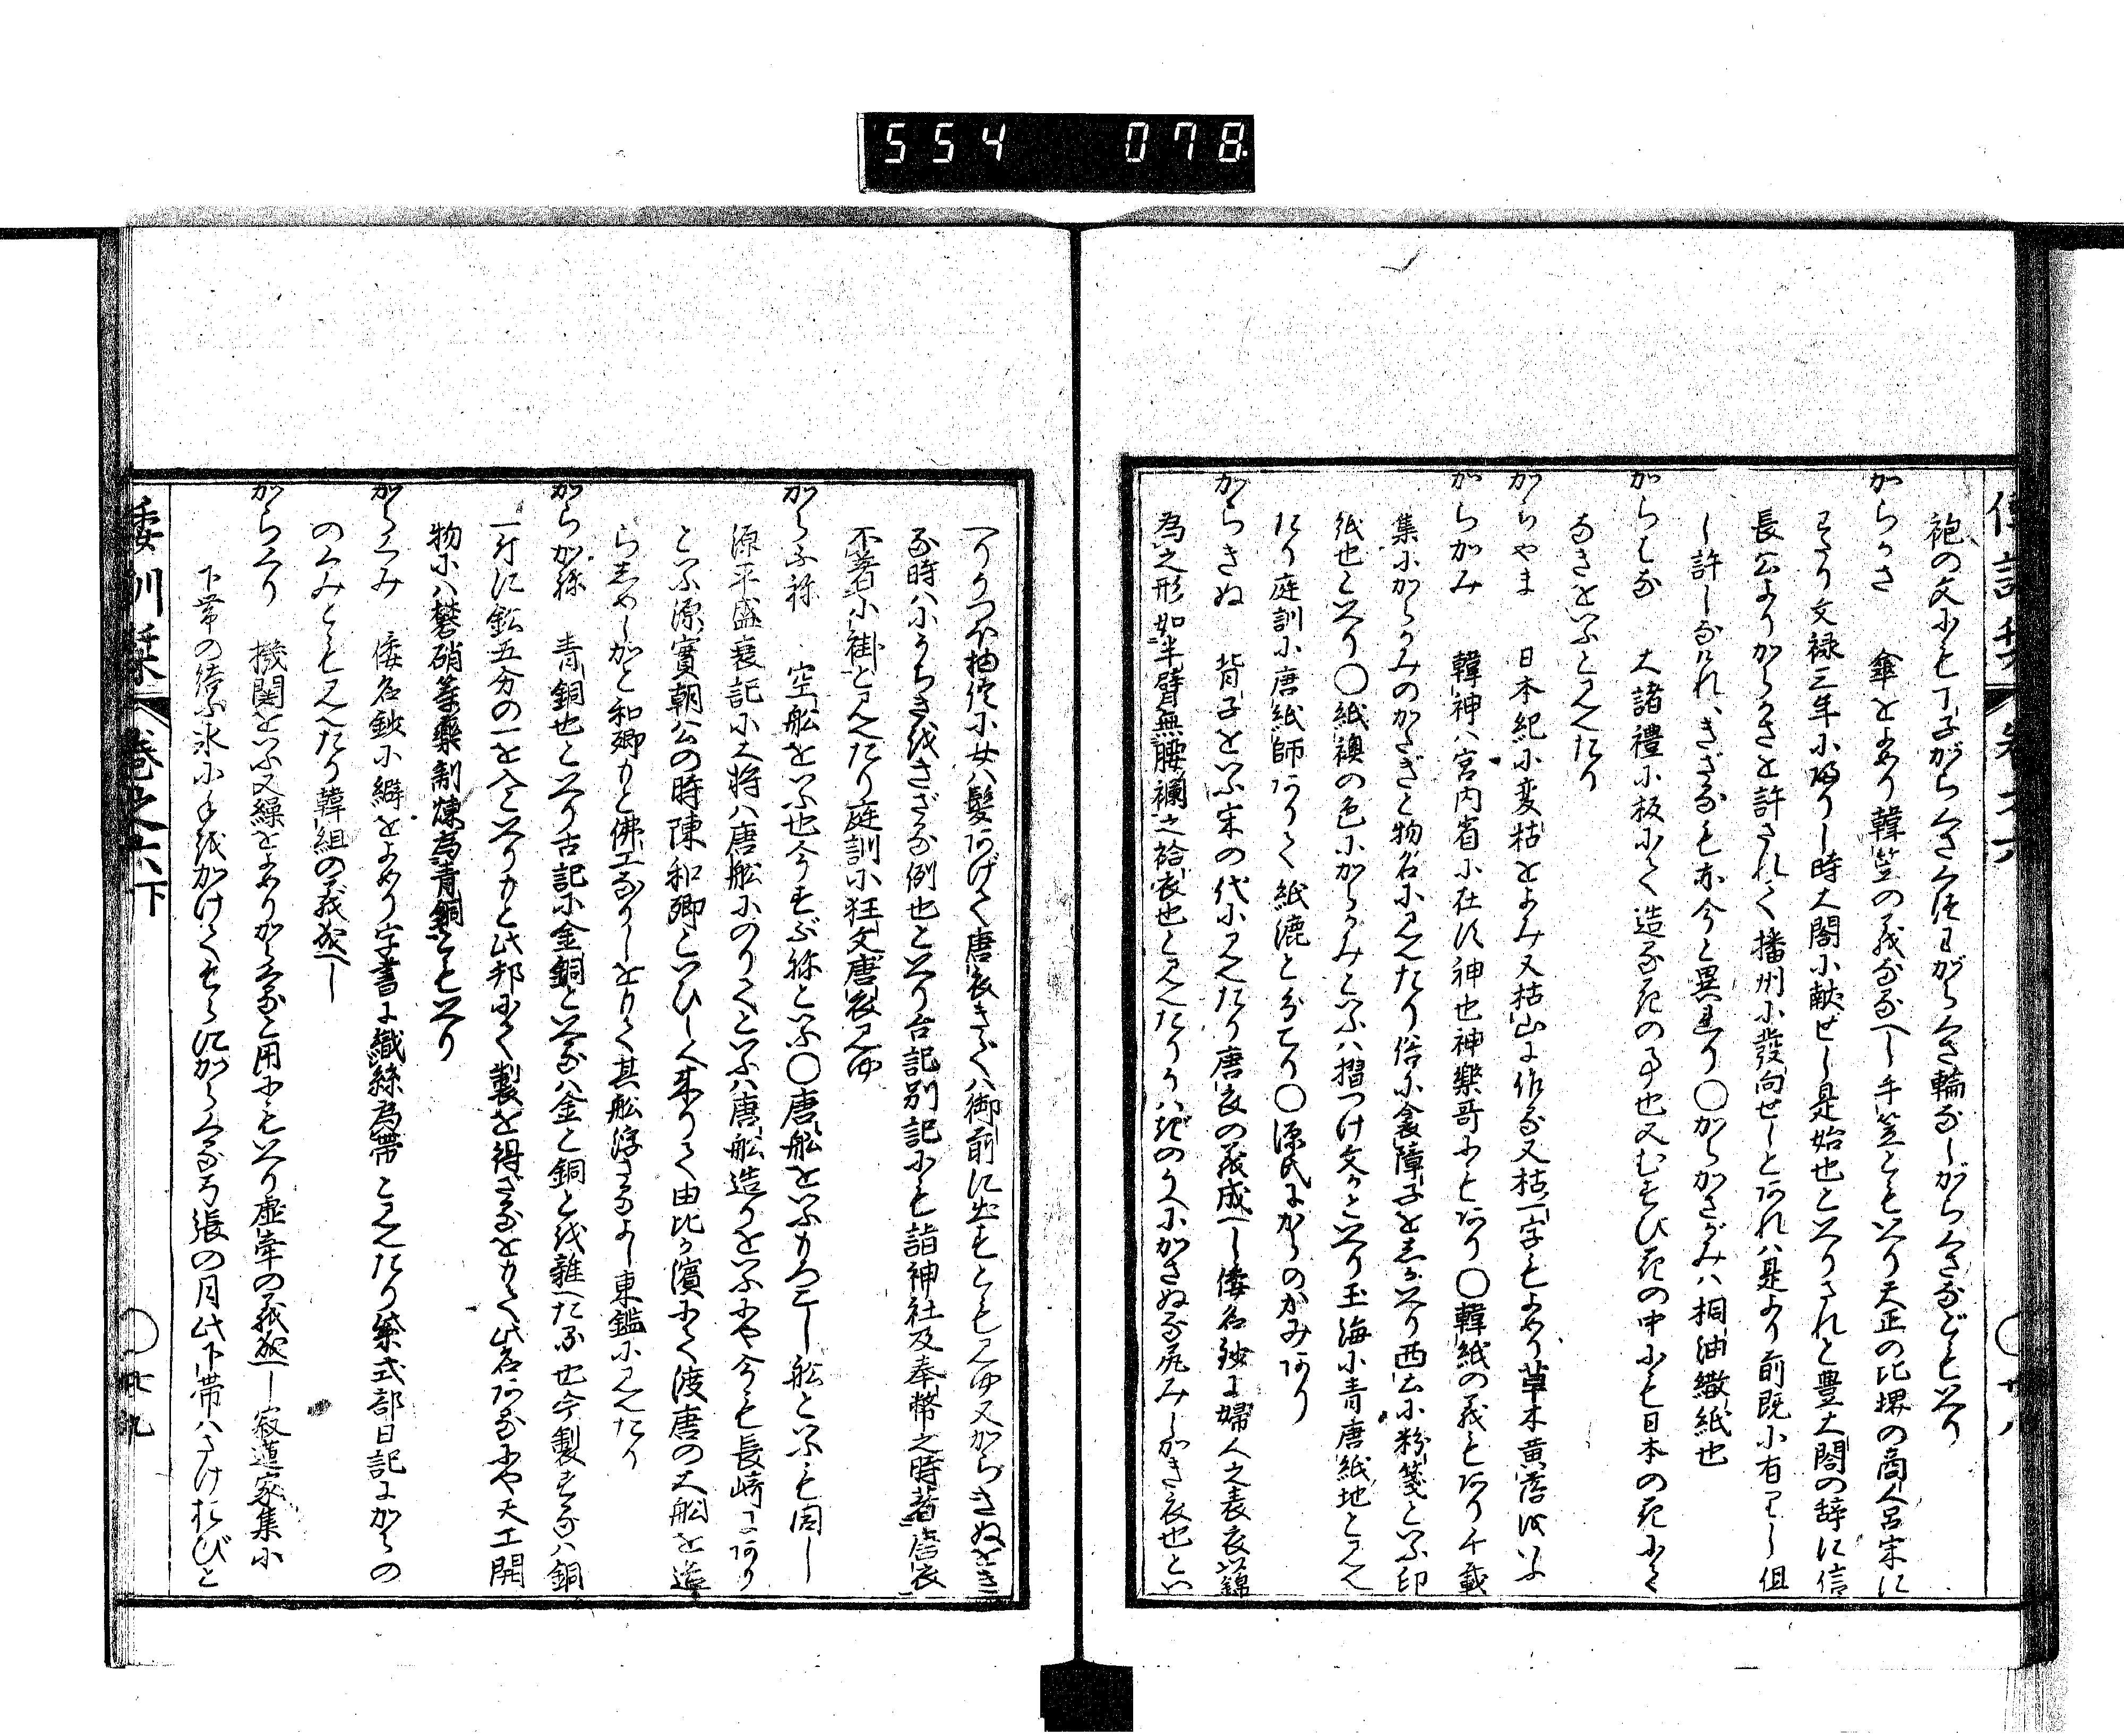 554 078
袍の文にも丁子がらくさくはまがらくさ輪なしがらくさなどもいへり
からかさ 傘をよめり韓笠の義なるへし手笠ともいへり天正の比堺の商人呂宋に
わたり文禄三年に帰りし時大閤に献せし是始也といへりされと豊大閤の辞に信
長公よりからかさを許されて播州に發向せしとあれハ是より前既に有りし但
し許しなけれハきざるも亦今と異れり〇からかさがみハ桐油繖紙也
からはな 大諸禮に板にて造る花の事也又むすび花の中にも日本の花にて
なきをいふと見えたり
からやま 日本紀に変枯をよみ又枯山に作る又枯一字もよめり草木黄落をいふ
からかみ 韓神ハ宮内省に在す神也神樂哥にもあり〇韓紙の義もあり千載
集にからかみのかたぎと物名に見えたり俗に衾障子をしかいへり西土に粉箋といふ印
紙也といへり〇紙襖の色にからかみといふハ摺つけ文かといへり玉海に青唐紙地と見え
たり庭訓に唐紙師ありて紙漉と分てり〇源氏にからのかみあり
からきぬ 背子をいふ宋の代に見えたり唐衣の義成へし倭名鈔に婦人之表衣以錦
為之形如半臂無腰襴之袷衣也と見えたりうハぎのうへにかさぬる尻みしかき衣也とい
へりうつほ物語に女ハ髪あげて唐衣きでハ御前に出すとも見ゆ又からきぬをき
る時ハ小うちきをきざる例也といへり台記別記にも詣神社及奉幣之時著唐衣
不著小褂と見えたり庭訓に狂文唐衣見ゆ
からふね 空船をいふ也今すぶねといふ〇唐船をいふもろこし船といふも同し
源平盛衰記に大将ハ唐船にのりてといふハ唐船造りをいふにや今も長崎にあり
といふ源實朝公の時陳和卿といひし人来りて由比か濱にて渡唐の大船を造
らしめしかと和卿もと佛工なりしをもて其船浮さるよし東鑑に見えたり
からかね 青銅也といへり古記に金銅といへるハ金と銅とを雜へたる也今製するハ銅
一斤に鉛五分の一を入といへりもと此邦にて製を得ざるをもて此名あるにや天工開
物にハ礬硝等藥制煉為青銅ともいへり
からくみ 倭名鈔に綷をよめり字書に織絲為帶と見えたり紫式部日記にからの
のくみとも見えたり韓組の義成へし
からくり 機関をいふ又繰をよめりからくると用にもいへり虚牽の義成へし寂蓮家集に
下帶の結ふ氷に手をかけてせきにからくる弓張の月此下帶ハさけおびと
倭訓栞 巻之六下 〇廿九